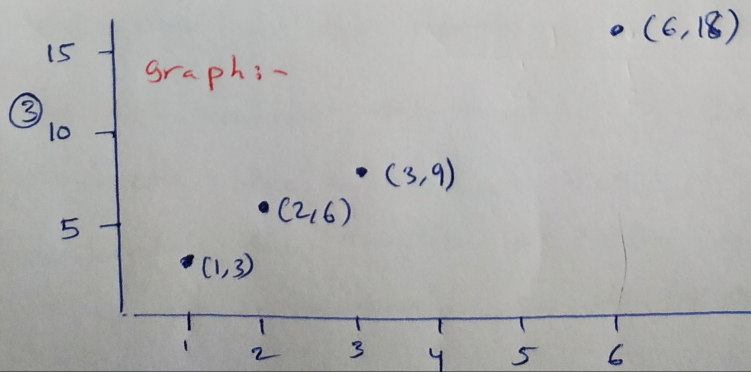 15
(6,18)
Graph:-
③
10
(3,9)
(2,6)
5
(1,3)
1 2 3 4 5 6